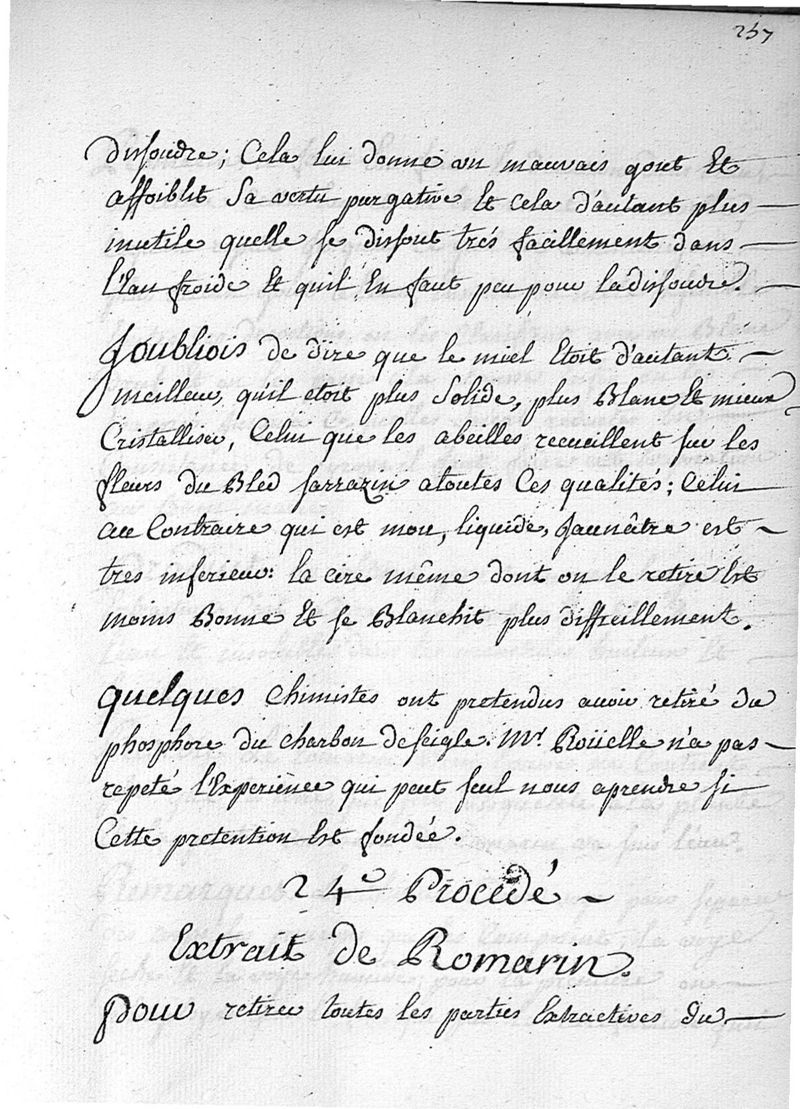 257
dissoudre; Cela lui donne un mauvais gout Et
affoiblit Sa vertu purgative Et cela d'autant plus
inutile quelle se dissout trés facillement dans
l'Eau froide Et quil En faut peu pour la dissoudre.
Joubliois de dire que le miel Etoit d'autant
meilleur, qu'il etoit plus Solide, plus Blanc Et mieux
Cristallisée, Celui que les abeilles recueillent sur les
fleurs du Bled sarrazin atoutes Ces qualités; Celui
au Contraire qui est mou, liquide, Jaunâtre est
tres inferieur: la cire même dont on le retire Est
moins Bonne Et se Blanchit plus difficilement.
quelques Chimistes ont pretendus avoir retiré du
phosphore du charbon de seigle. Mr. Roüelle n'a pas
repeté l'Experience qui peut seul nous aprendre si
Cette pretention Est fondée.
24e Procedé
Extrait de Romarin.
pour retirer toutes les parties Extractives du